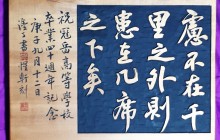 慮不在千
里之外則
患在几席
之下矣
祝冠岳高等學校
卒業四十週年記念
庚子九月十二日